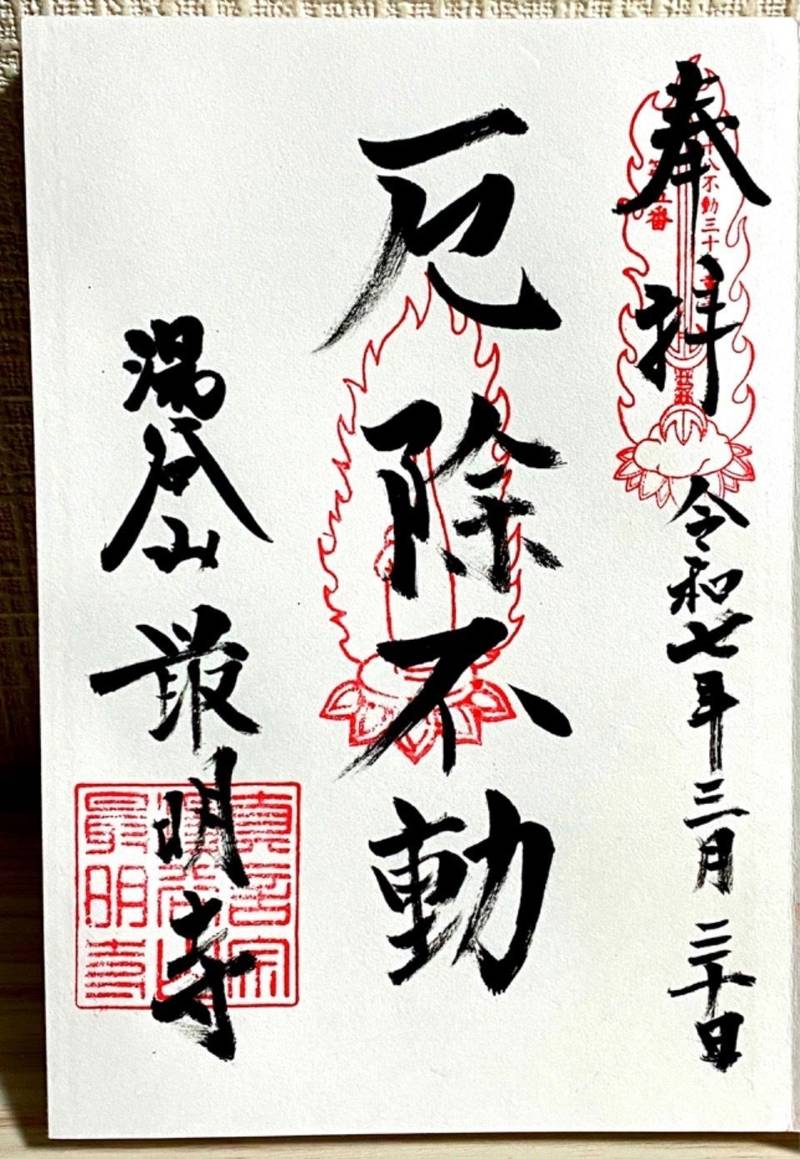 奉拝
十八不動三十
番
令和七年三月二十日
厄除不動
湯谷山 最明寺
真言宗
湯谷山
最明寺